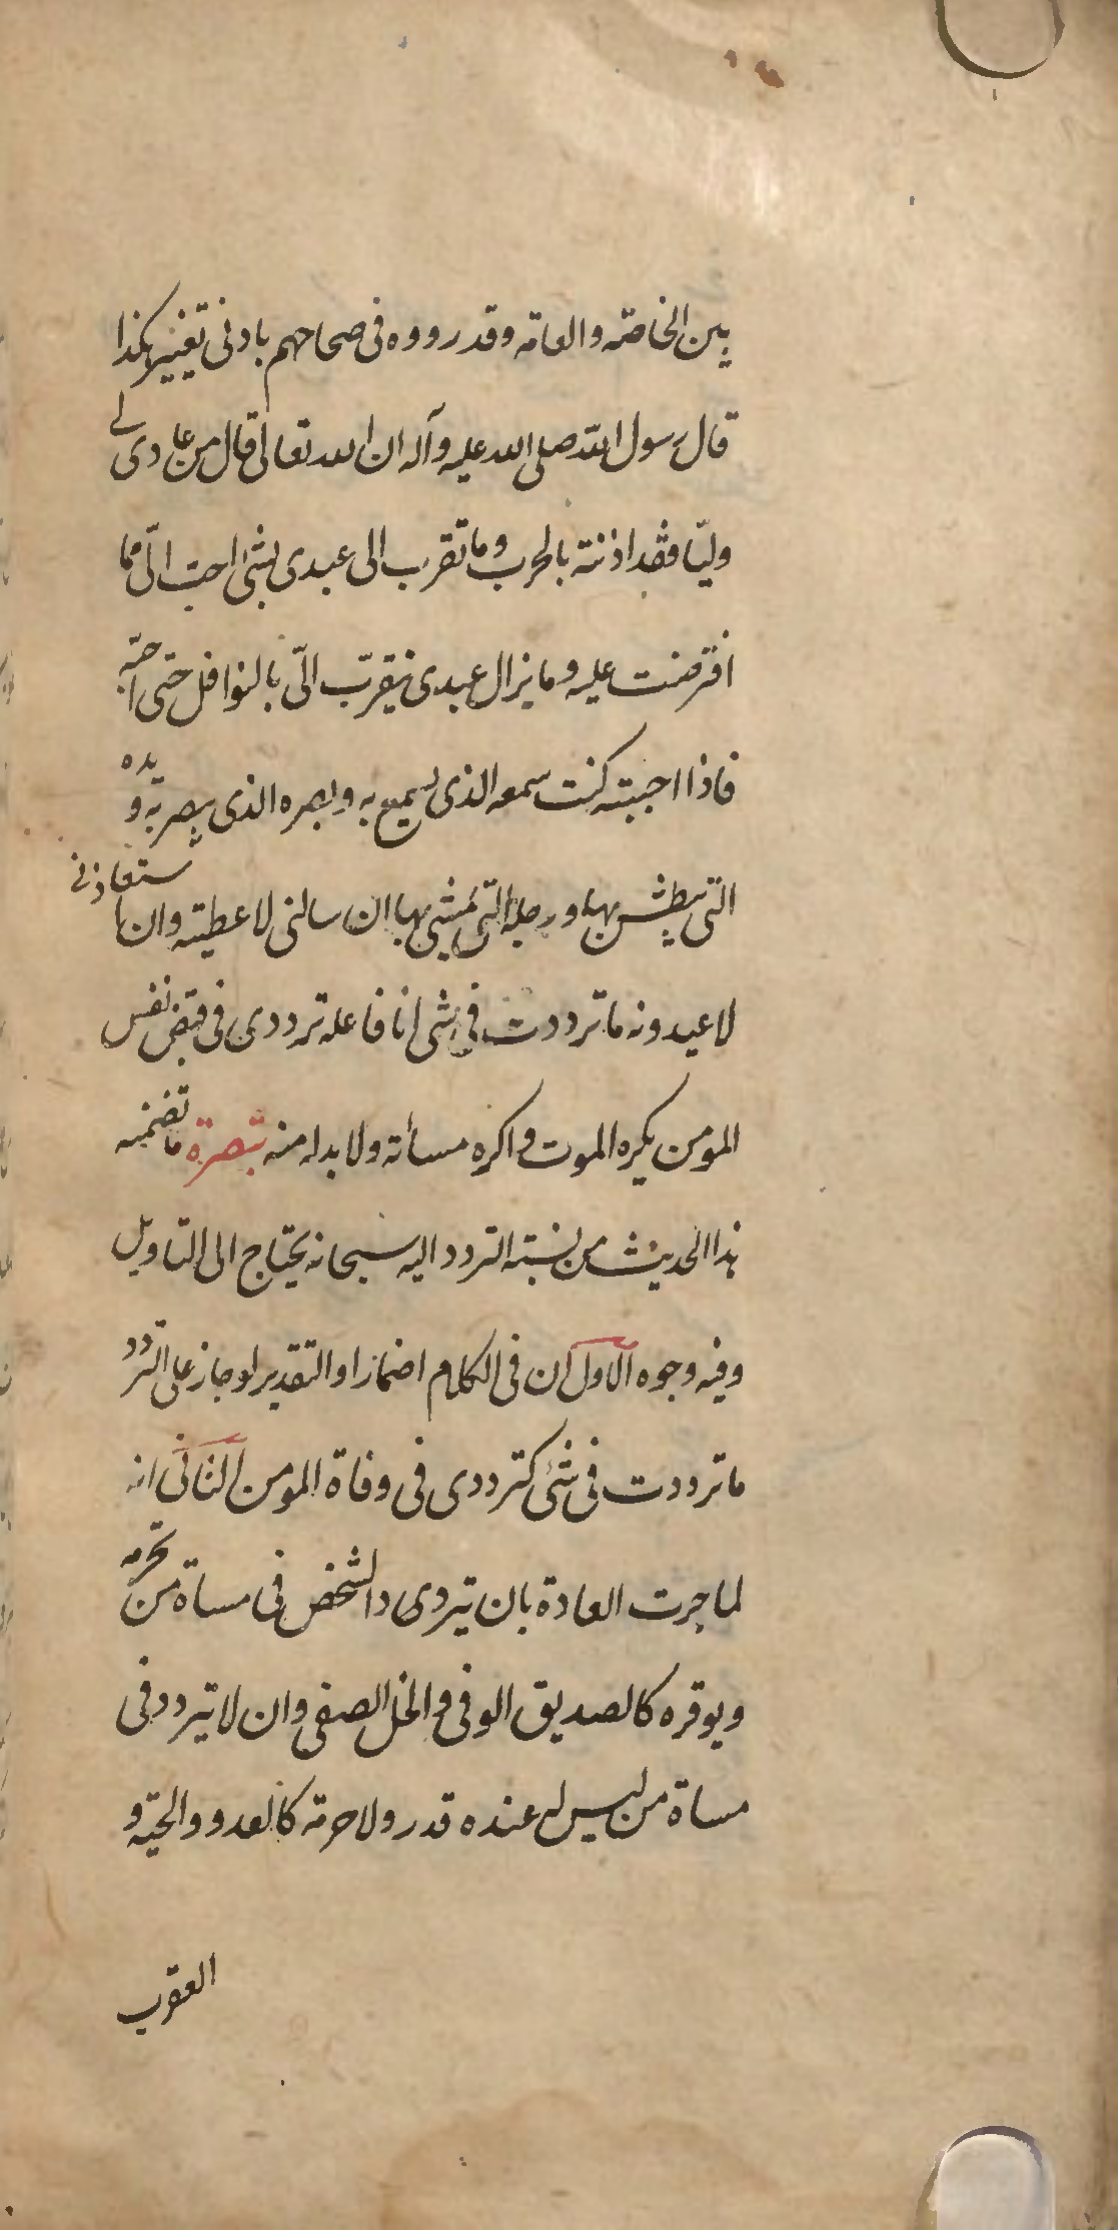 بين الخاصة والعامة وقد رووه في صحاحهم بادنى تغيير هكذا
قال رسول الله صلى الله عليه وآله ان الله تعالى قال من عادى لي
وليّا فقد اذنته بالحرب وما تقرب الى عبدى بشئ احبّ الىّ مما
افترضت عليه وما يزال عبدى يتقرّب الىّ بالنوافل حتى احبّه
فاذا احببته كنت سمعه الذى يسمع به وبصره الذى يبصر به ويده
التى يبطش بها ورجله التى يمشى بها ان سالنى لاعطيته وان استعاذنى
لاعيدونه ما ترددت في شئ انا فاعله ترددى في قبض نفس
المومن يكره الموت واكره مسأته ولا بد له منه تبصرة ما تضمنه
هذا الحديث من نسبة التردد اليه سبحانه يحتاج الى التاويل
وفيه وجوه الاول ان في الكلام اضمارا والتقدير لو جاز على التردد
ما ترددت في شئ كترددى في وفاة المومن الثانى انه
لما جرت العادة بان يتردى دالشخص في مساة من يحترمه
ويوقره كالصديق الوفى والخل الصفى وان لا يتردد في
مساة من ليس له عنده قدر ولا حرمة كالعدو والحيّة و
العقرب